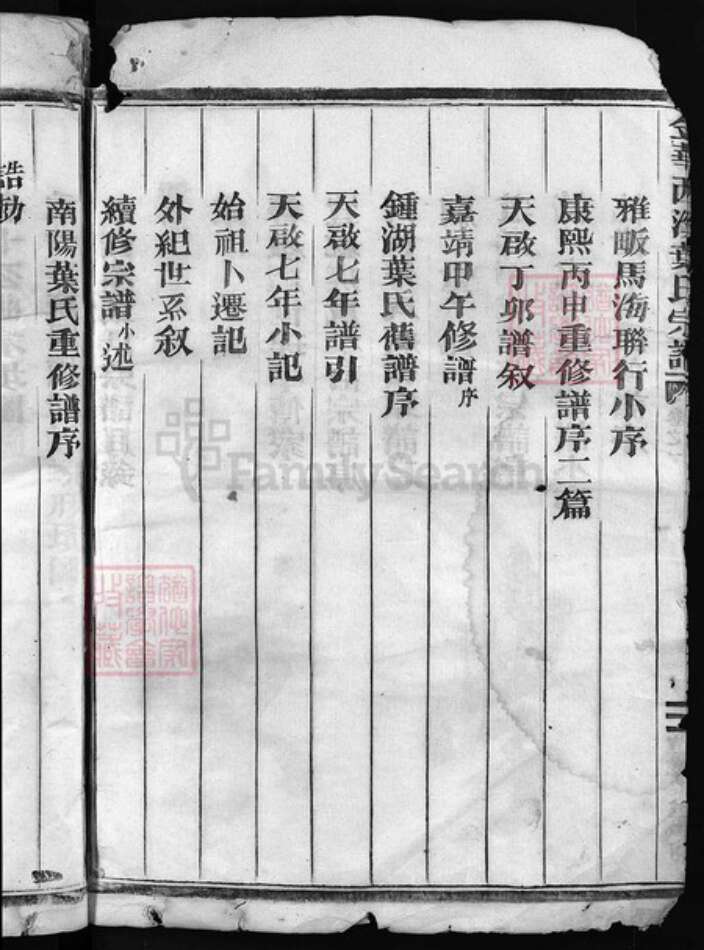 雅畈馬海聯行小序
康熙丙申重修譜序二篇
天啟丁卯譜叙
嘉靖甲午修譜序
鍾湖葉氏舊譜序
天啟七年譜引
天啟七年小記
始祖卜遷記
外紀世系叙
續修宗譜小述
南陽葉氏重修譜序
誥勅
FamilySearch